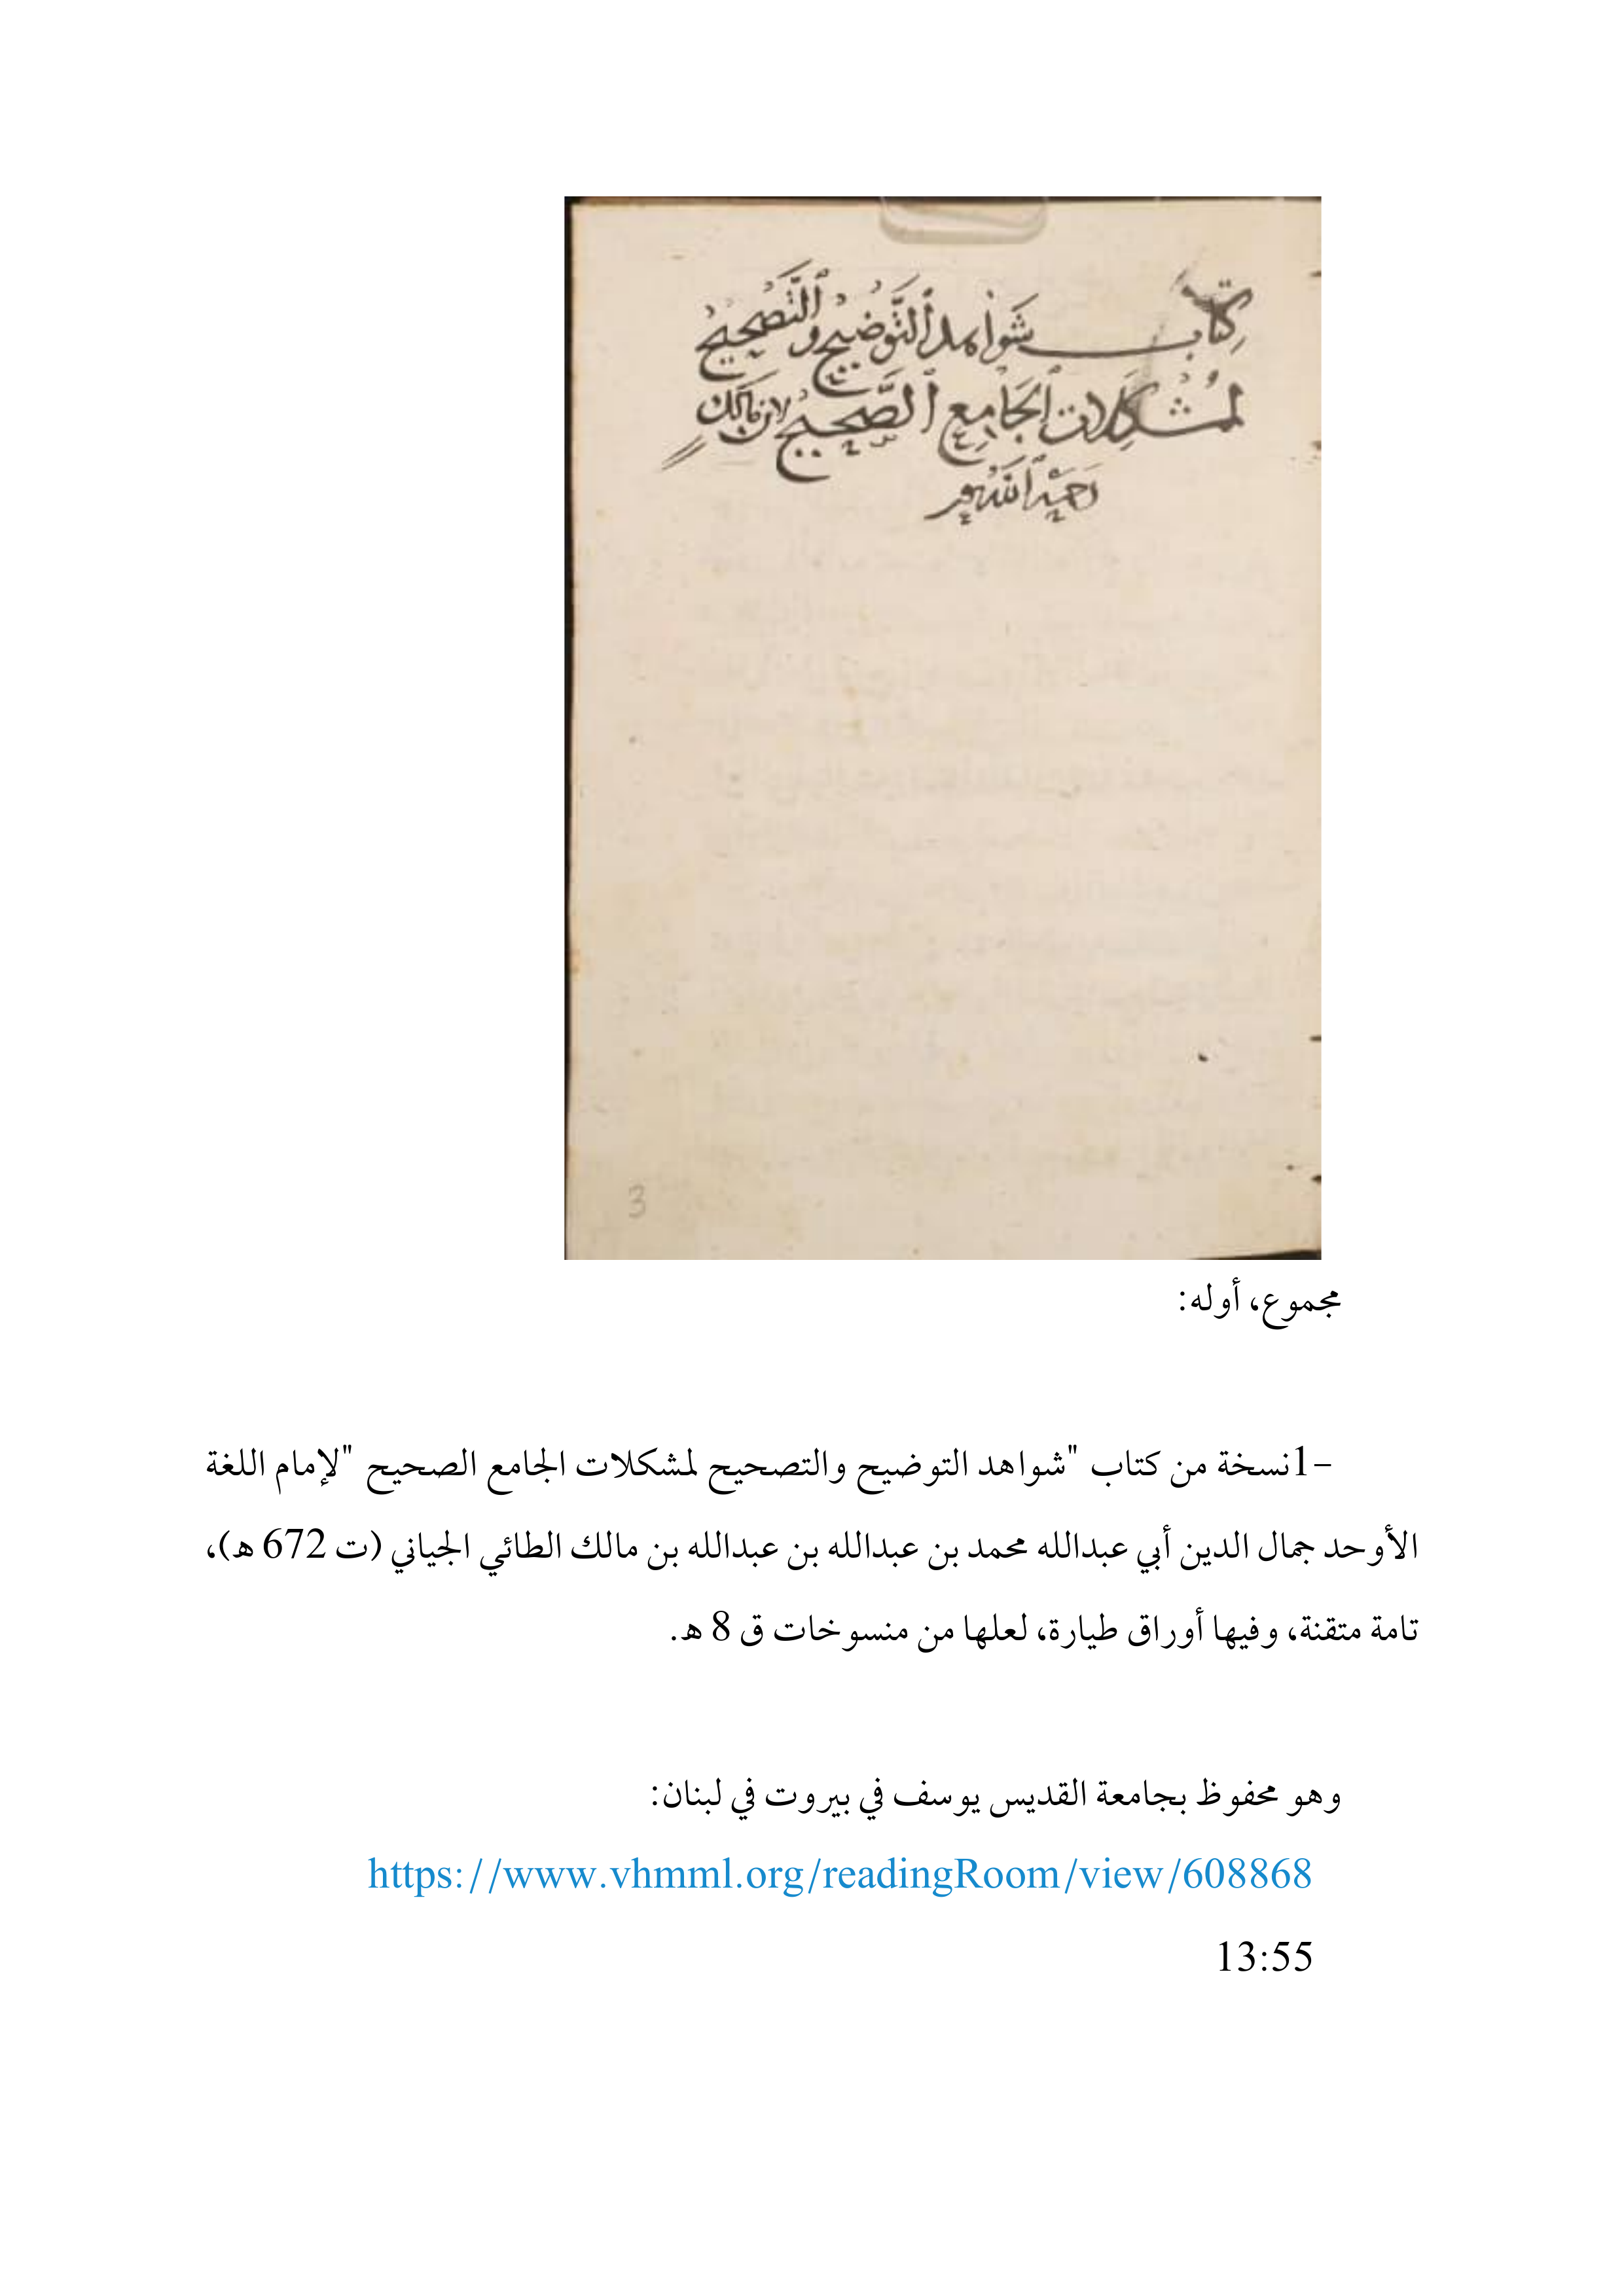 كِتَاب شَوَاهد ٱلتَّوضِيح وٱلتَّصْحِيح
لمُشْكِلَات ٱلجَامِع ٱلصَّحِيح لابن مالك
رحمه ٱلله
3
مجموع، أوله:
1- نسخة من كتاب "شواهد التوضيح والتصحيح لمشكلات الجامع الصحيح "لإمام اللغة
الأوحد جمال الدين أبي عبدالله محمد بن عبدالله بن عبدالله بن مالك الطائي الجياني (ت 672 ه)،
تامة متقنة، وفيها أوراق طيارة، لعلها من منسوخات ق 8 ه.
وهو محفوظ بجامعة القديس يوسف في بيروت في لبنان:
https://www.vhmml.org/readingRoom/view/608868
13:55